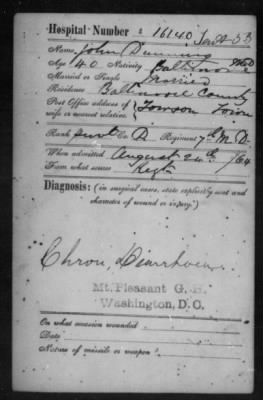 Hospital Number 16140
Name John
Age 40 Nativity Baltimore Md
Married or Single Married
Residence Baltimore County
Post Office address of wife or nearest relative. } Towson Town
Rank Pvt Co. D Regiment 7th Md
When admitted August 24th /64
From what source Regt
Diagnosis: (in surgical cases, state explicitly seat and
character of wound or injury.)
Chron. Diarrhoea
Mt. Pleasant G. H.
Washington, D.C.
On what occasion wounded
Date
Nature of missile or weapon